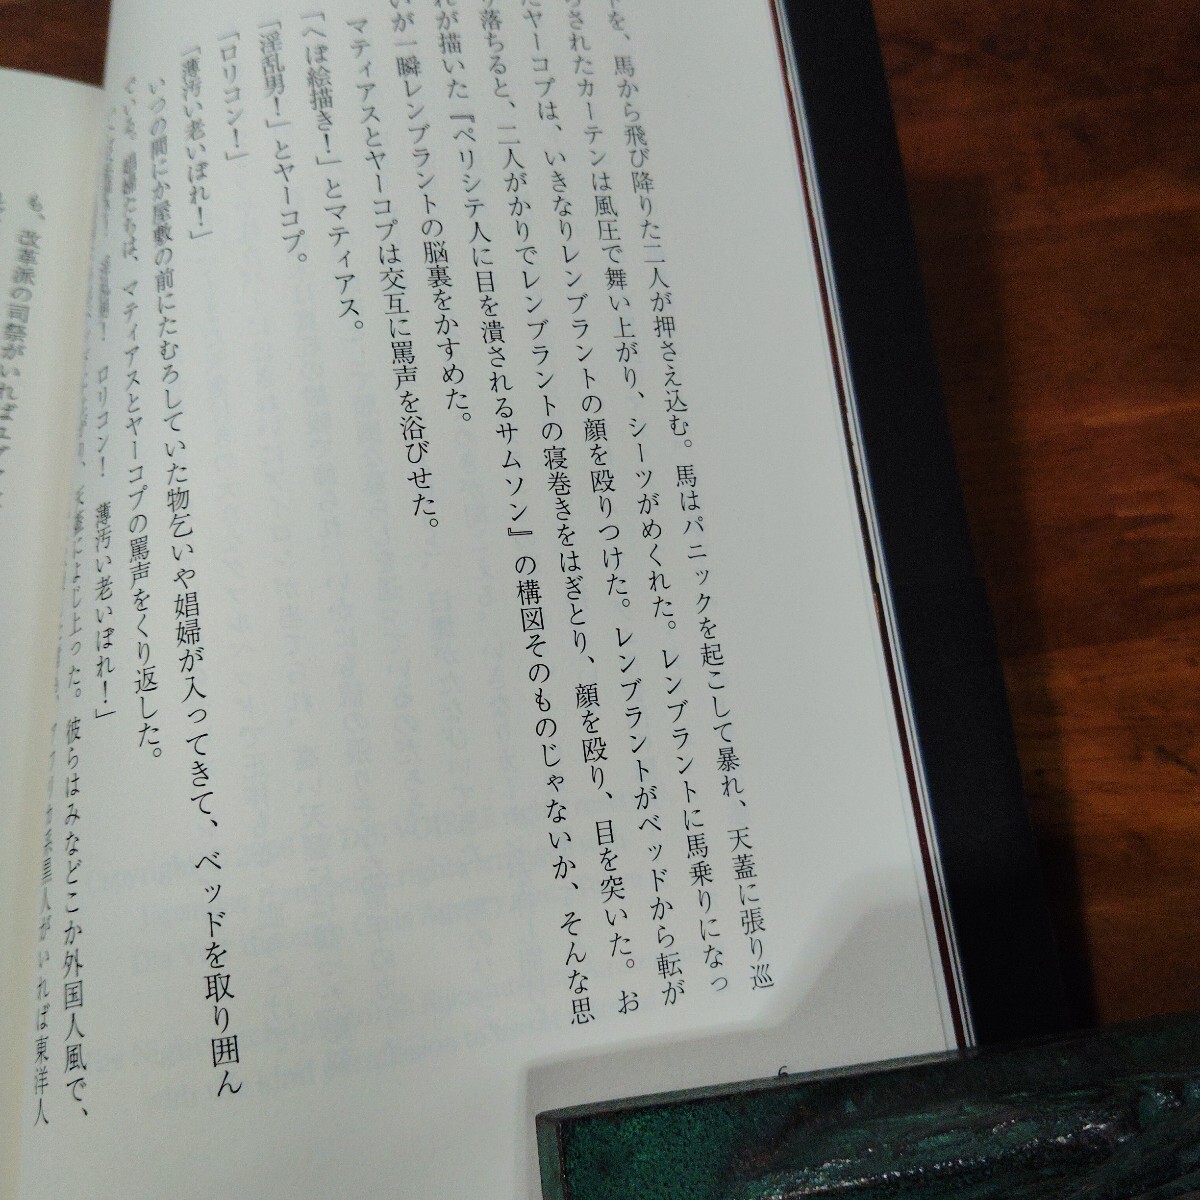 トを、馬から飛び降りた二人が押さえ込む。馬はパニックを起こして暴れ、天蓋に張り巡
らされたカーテンは風圧で舞い上がり、シーツがめくれた。レンブラントに馬乗りになっ
たヤーコプは、いきなりレンブラントの顔を殴りつけた。レンブラントがベッドから転が
り落ちると、二人がかりでレンブラントの寝巻きをはぎとり、顔を殴り、目を突いた。お
れが描いた『ペリシテ人に目を潰されるサムソン』の構図そのものじゃないか、そんな思
いが一瞬レンブラントの脳裏をかすめた。
マティアスとヤーコプは交互に罵声を浴びせた。
「へぼ絵描き！」とマティアス。
「淫乱男！」とヤーコプ。
「ロリコン！」
「薄汚い老いぼれ！」
いつの間にか屋敷の前にたむろしていた物乞いや娼婦が入ってきて、ベッドを取り囲ん
でいる。娼婦たちは、マティアスとヤーコプの罵声をくり返した。
ロリコン！　薄汚い老いぼれ！」
によじ上った。彼らはみなどこか外国人風で、
人がいれば東洋人
も、改革派の司祭がいれば